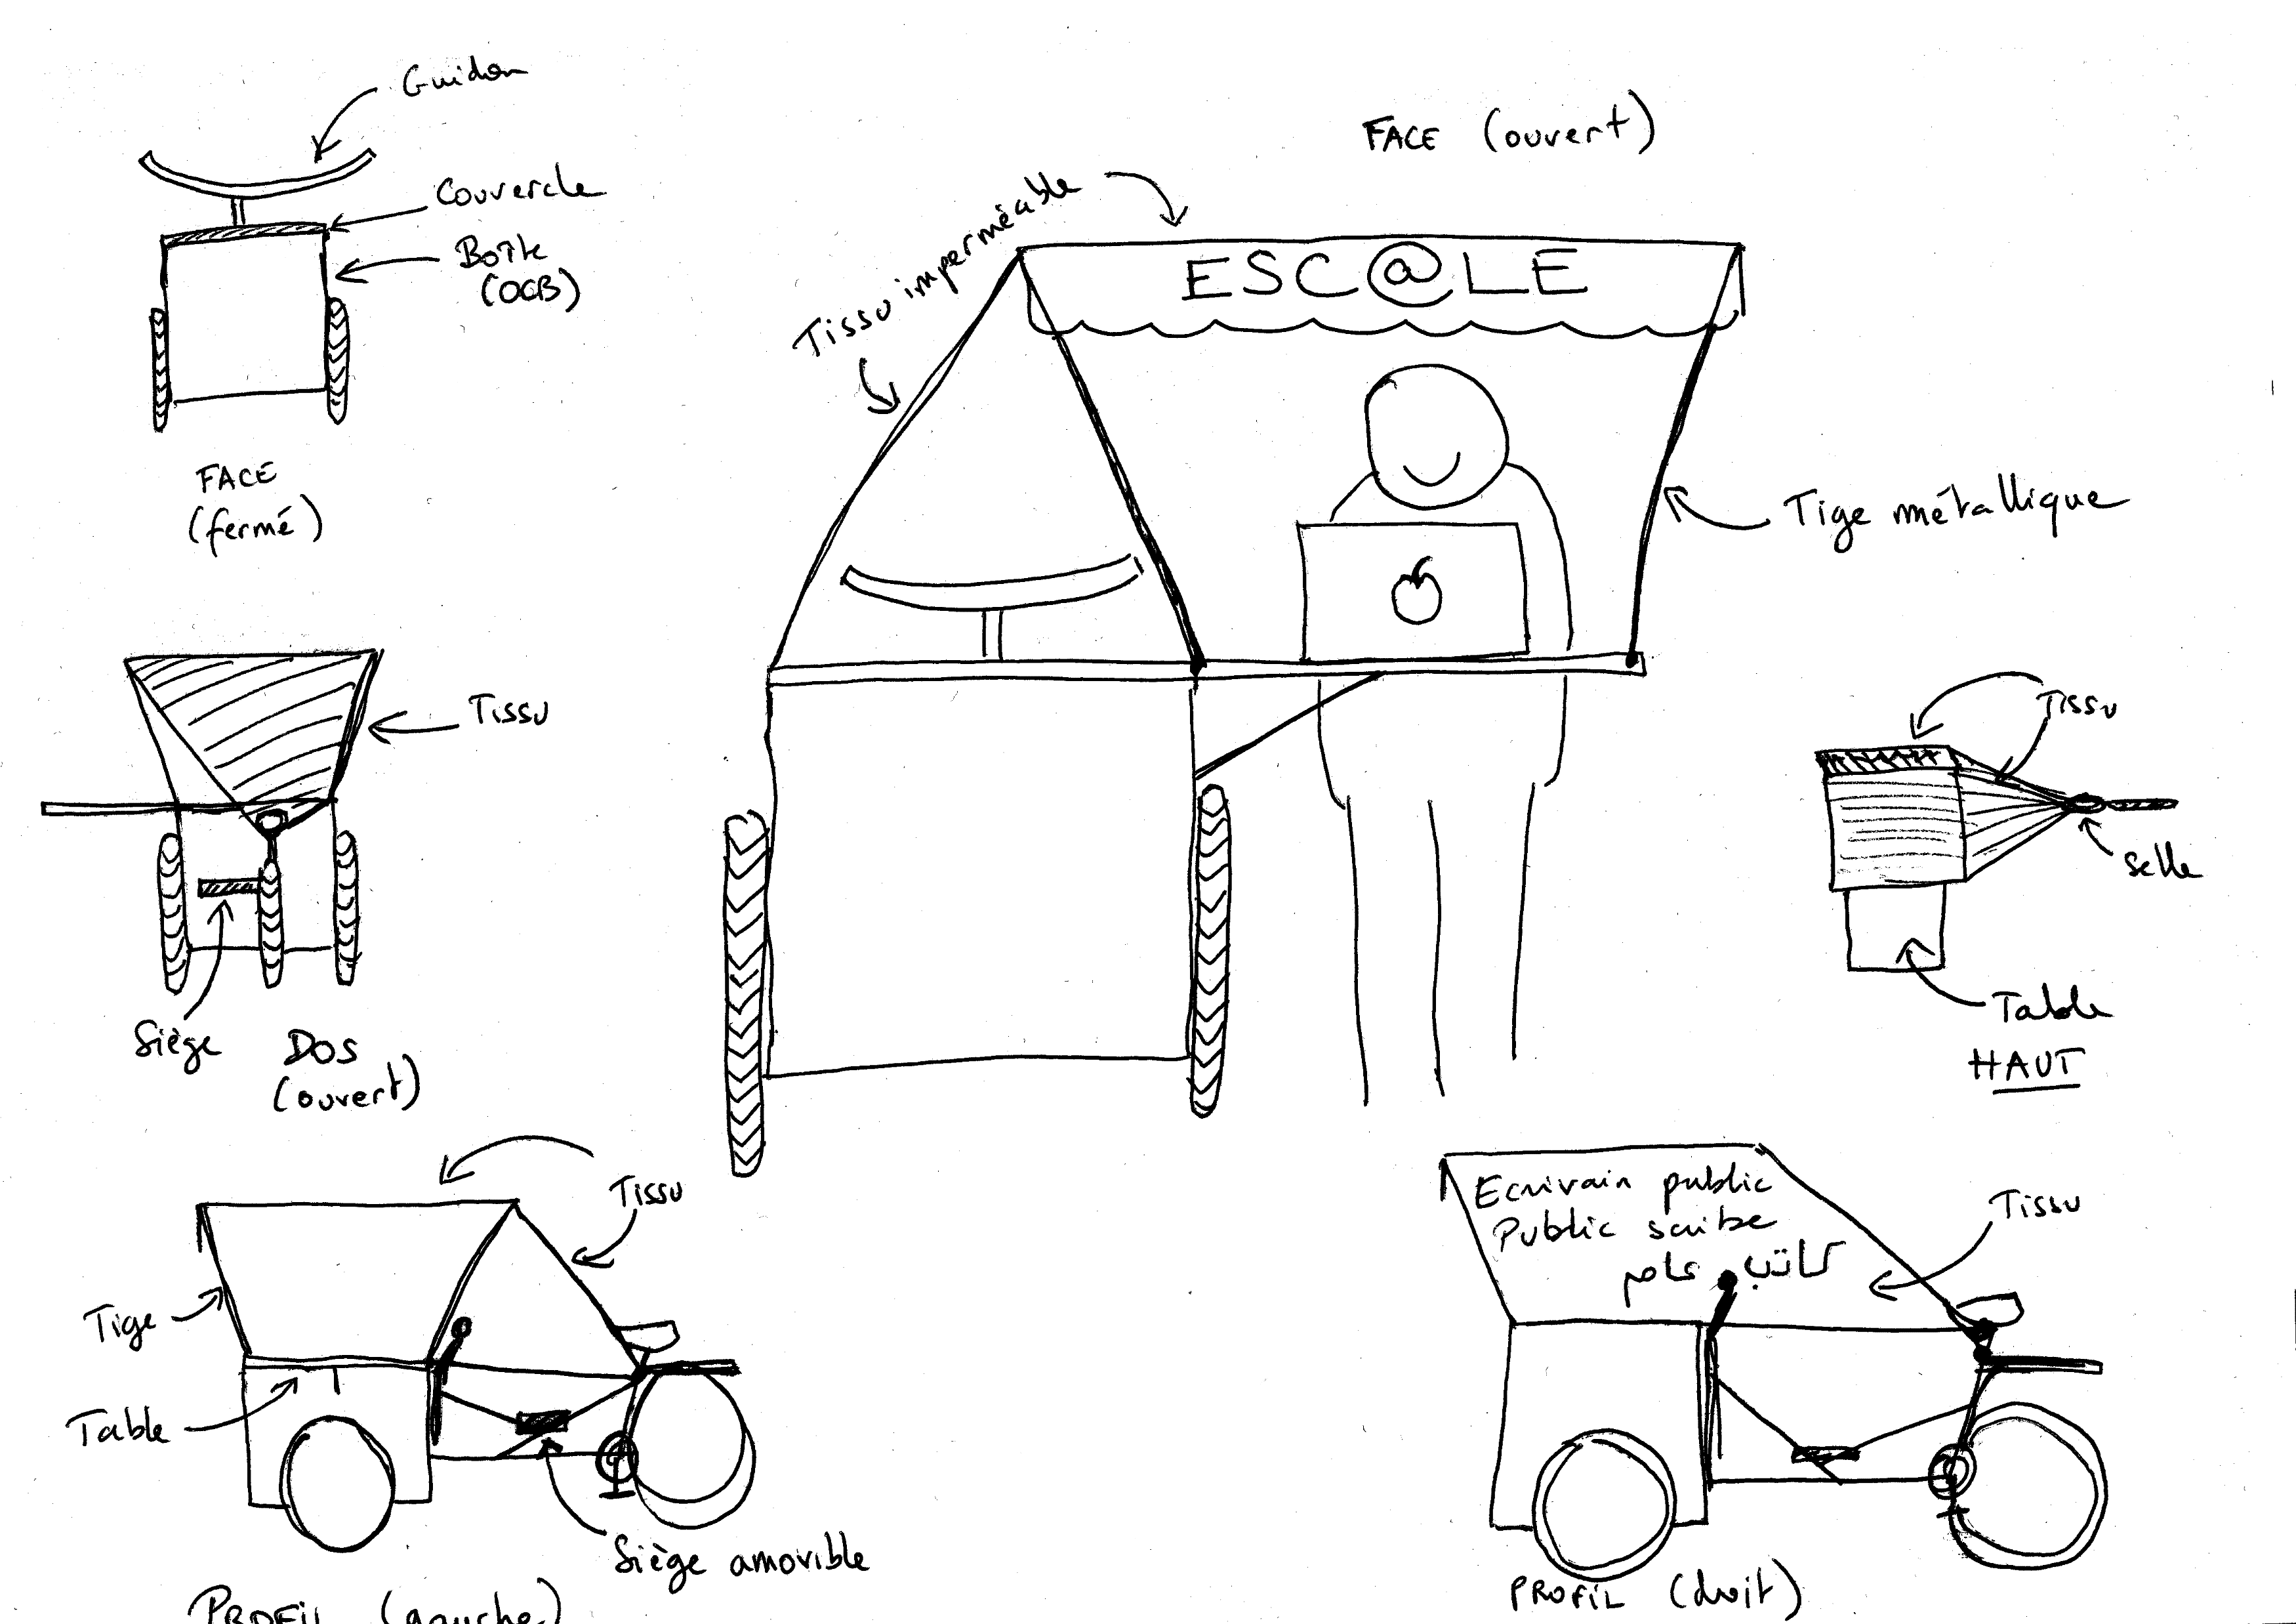 Guidon
Couvercle
Boîte
(OCB)
FACE
(fermé)
FACE (ouvert)
Tissu imperméable
ESC@LE
Tige métallique
Tissu
Siège
DOS
(ouvert)
Tissu
selle
Table
HAUT
Tissu
Tige
Table
Siège amovible
PROFIL (gauche)
Ecrivain public
Public scribe
كاتب عام
Tissu
PROFIL (droit)